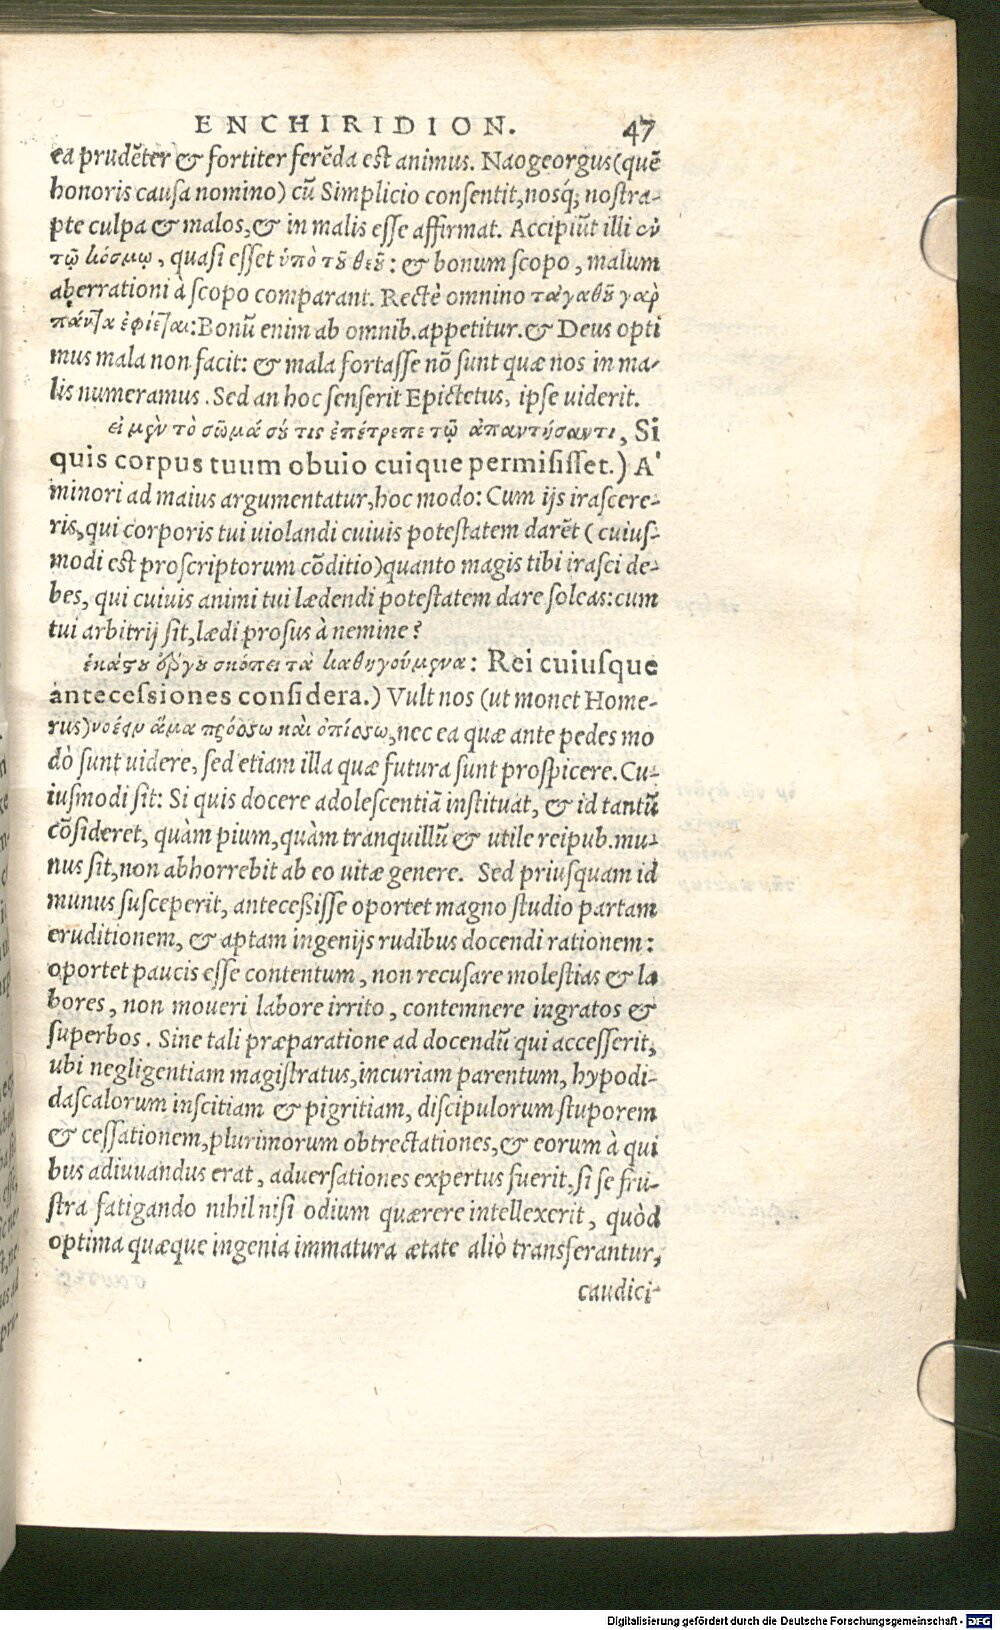 ENCHIRIDION. 47
ea prudẽter & fortiter ferẽda est animus. Naogeorgus (quẽ
honoris causa nomino) cũ Simplicio consentit, nosq́; nostra-
pte culpa & malos, & in malis esse affirmat. Accipiũt illi ἐν
τῷ κόσμῳ, quasi esset ὑπὸ τοῦ θεοῦ: & bonum scopo, malum
aberrationi à scopo comparant. Rectè omnino τἀγαθοῦ γὰρ
πάντα ἐφίεται: Bonũ enim ab omnib. appetitur. & Deus opti
mus mala non facit: & mala fortasse nõ sunt quæ nos in ma-
lis numeramus. Sed an hoc senserit Epictetus, ipse uiderit.
εἰ μὲν τὸ σῶμά σού τις ἐπέτρεπε τῷ ἀπαντήσαντι, Si
quis corpus tuum obuio cuique permisisset.) A'
minori ad maius argumentatur, hoc modo: Cum ijs irascere-
ris, qui corporis tui uiolandi cuiuis potestatem darẽt (cuius-
modi est proscriptorum cõditio) quanto magis tibi irasci de-
bes, qui cuiuis animi tui lædendi potestatem dare soleas: cum
tui arbitrij sit, lædi prosus à nemine?
ἑκάστου ἔργου σκόπει τὰ καθηγούμενα: Rei cuiusque
antecessiones considera.) Vult nos (ut monet Home-
rus) νοέειν ἅμα πρόσσω καὶ ὀπίσσω, nec ea quæ ante pedes mo
dò sunt uidere, sed etiam illa quæ futura sunt prospicere. Cu-
iusmodi sit: Si quis docere adolescentiã instituat, & id tantũ
cõsideret, quàm pium, quàm tranquillũ & utile reipub. mu-
nus sit, non abhorrebit ab eo uitæ genere. Sed priusquam id
munus susceperit, antecessisse oportet magno studio partam
eruditionem, & aptam ingenijs rudibus docendi rationem:
oportet paucis esse contentum, non recusare molestias & la
bores, non moueri labore irrito, contemnere ingratos &
superbos. Sine tali præparatione ad docendũ qui accesserit,
ubi negligentiam magistratus, incuriam parentum, hypodi-
dascalorum inscitiam & pigritiam, discipulorum stuporem
& cessationem, plurimorum obtrectationes, & eorum à qui
bus adiuuandus erat, aduersationes expertus fuerit, si se fru-
stra fatigando nihil nisi odium quærere intellexerit, quòd
optima quæque ingenia immatura ætate aliò transferantur,
caudici-
Digitalisierung gefördert durch die Deutsche Forschungsgemeinschaft - DFG